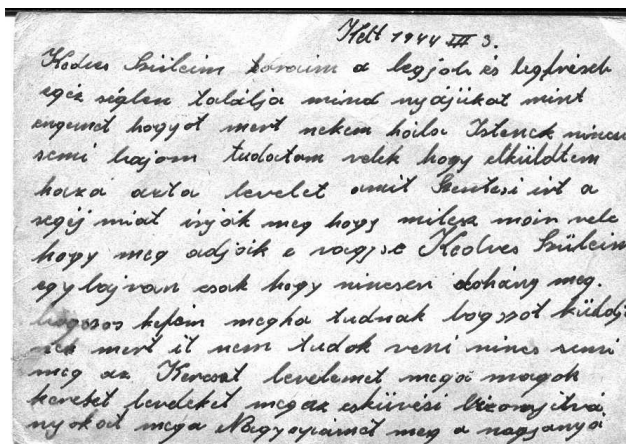 Kelt 1944 III 3.
Kedves Szüleim soraim a legjob és legfriseb
egéz ségben találja mind nyájukat mint
engemet hogyot mert nekem hála Istenek nincsen
semi bajom tudatom velek hogy elküldtem
haza azta levelet amit Szentesi irt a
segij miat irják meg hogy milesz máin vele
hogy meg adjáik e vagyse Kedves Szüleim
egy baj van csak hogy nincsen dohány meg.
megha tudnak bagszot küldj
nek mert it nem tudok veni nincs semi
meg az Kereszt levelemet mega magok
kereszt leveleket megaz esküvési bizonyitvá
nyokat mega Nagyapámat meg a nagyanyá